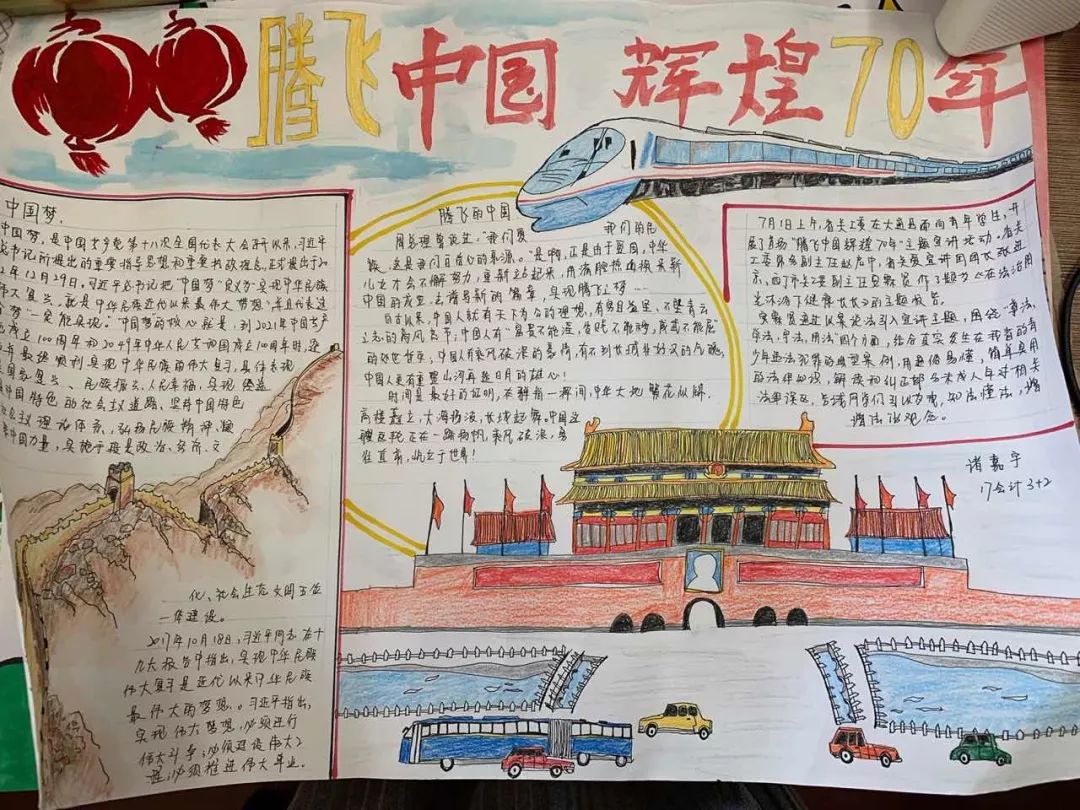 腾飞中国 辉煌70年
中国梦.
中国梦,是中国共产党第十八次全国代表大会召开以来,习近平
总书记所提出的重要指导思想和重要执政理念,正式提出于20
12年11月29日,习近平总书记把"中国梦"定义为"实现中华民族
伟大复兴,就是中华民族近代以来最伟大梦想",并且
梦"一定能实现。"中国梦的核心就是,到2021年中国共产
党成立100周年和2049年中华人民共和国成立100周年时,逐
步并最终顺利实现中华民族的伟大复兴,具体表现
是国家富强、民族振兴、人民幸福,实现
中国特色的社会主义道路、坚持中国特色
社会主义理论体系、弘扬民族精神、凝
聚中国力量,实施手段是政治、经济、文
化、社会生态文明五位
一体建设。
2017年10月18日,习近平同志在十
九大报告中指出,实现中华民族
伟大复兴是近代以来中华民族
最伟大的梦想。习近平指出,
实现伟大梦想,必须进行
伟大斗争;必须建设伟大工
程;必须推进伟大事业。
腾飞的中国
周总理曾说过,"我们爱 我们的民
族,这是我们自信心的源泉。"是啊,正是由于爱国,中华
儿女才会不懈努力,重新站起来,用满腔热血换来新
中国的成立,去谱写新的篇章,实现腾飞之梦……
自古以来,中国人就有天下为公的理想,有穷且益坚,不坠青云
之志的高风亮节;中国人有"富贵不能淫,贫贱不能移,威武不能屈"
的处世哲学;中国人有乘风破浪的豪情,有不到长城非好汉的气魄;
中国人更有重整山河再造日月的雄心!
时间是最好的证明,在瞬间中华大地繁花似锦,
高楼矗立,大海扬波,长城起舞。中国这
艘巨轮正在一路扬帆,乘风破浪,勇
往直前,屹立于世界!
7月1日上午,省关工委在大通县面向青年学生,开
展了县场"腾飞中国辉煌70年"主题宣讲活动。省关
工委常务副主任赵启中,省关爱宣讲团团长张进
京、西宁市关工委副主任莫 作了题为《在法治阳
光沐浴下健康成长》的主题报告。
通过以案说法引入宣讲主题,围绕"尊法,
学法,守法,用法"四个方面,结合真实发生在我省的青
少年违法犯罪的典型案例,用通俗易懂,简单实用
的法律知识,解读和纠正部分未成年对相关
法律误区,告诫同学们引以为戒,知法懂法,增
强法治观念。
诸嘉宇
17会计3+2